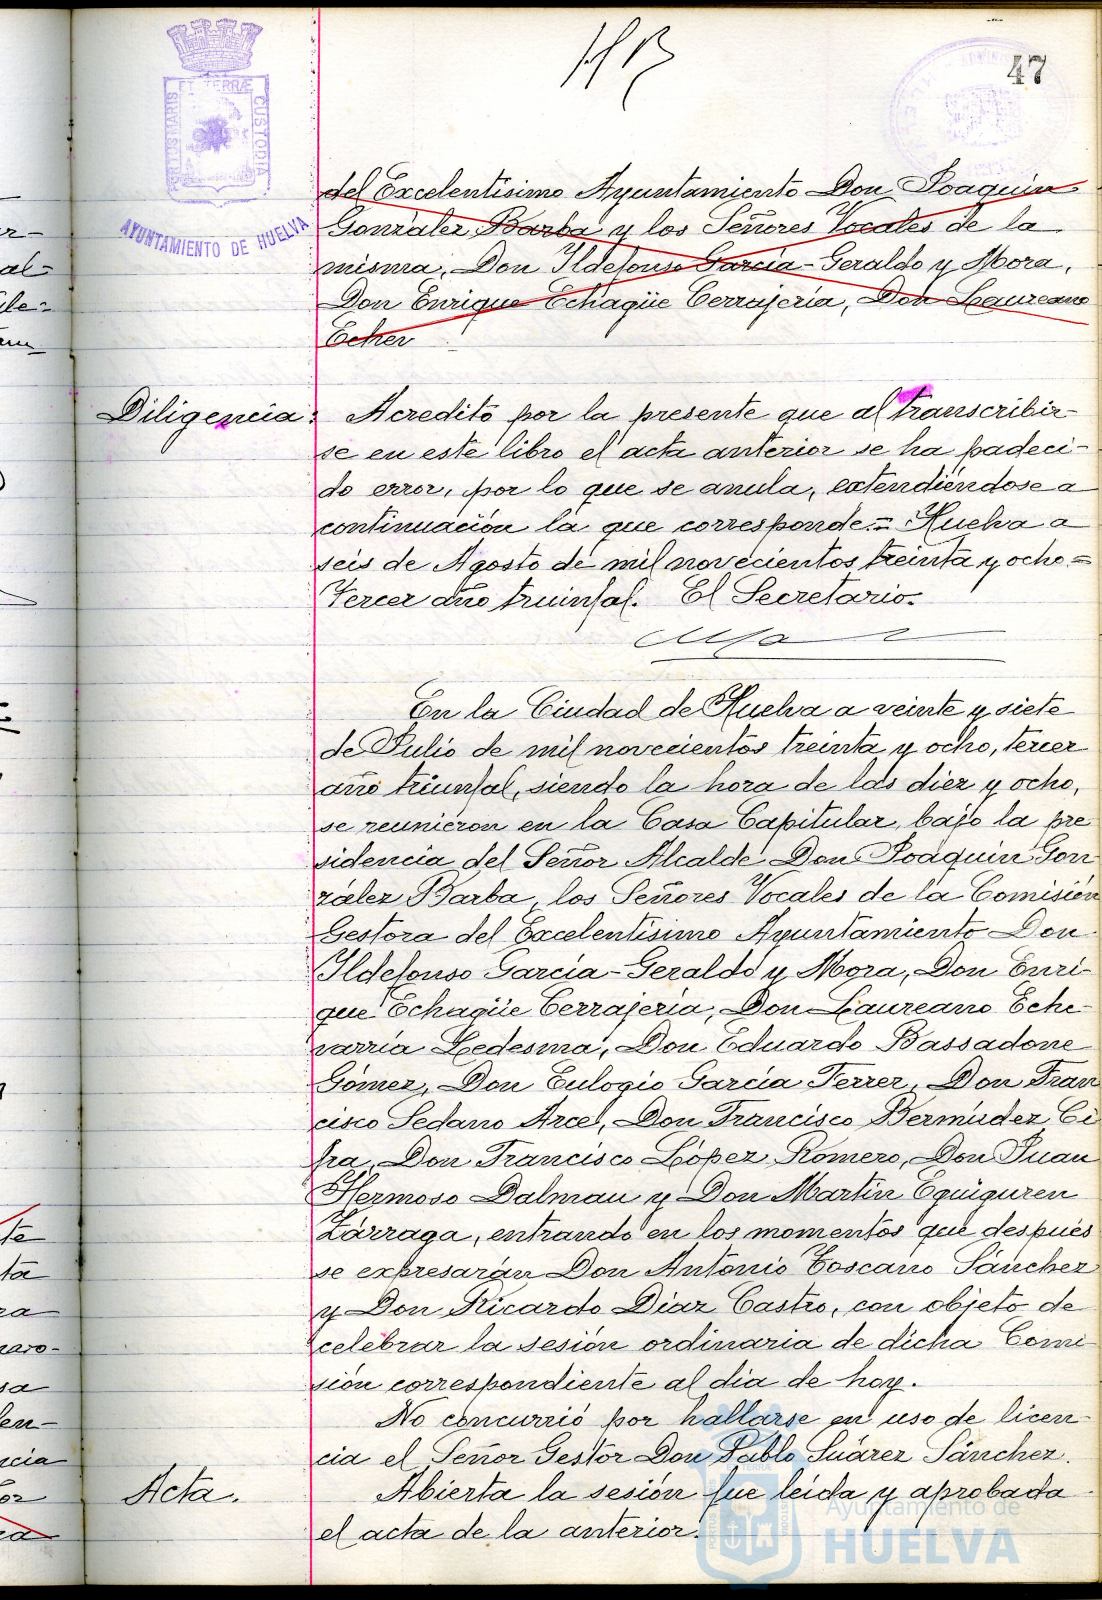 47
PORTUS MARIS ET TERRÆ CUSTODIA
AYUNTAMIENTO DE HUELVA
del Excelentísimo Ayuntamiento Don Joaquín
González Barba y los Señores Vocales de la
misma, Don Ildefonso García-Geraldo y Mora,
Don Enrique Echagüe Cerrajería, Don Laureano
Echer
Diligencia: Acredito por la presente que al transcribir-
se en este libro el acta anterior se ha padeci-
do error, por lo que se anula, extendiéndose a
continuación la que corresponde.= Huelva a
seis de Agosto de mil novecientos treinta y ocho=
Tercer año triunfal. El Secretario.
En la Ciudad de Huelva a veinte y siete
de Julio de mil novecientos treinta y ocho, tercer
año triunfal, siendo la hora de las diez y ocho,
se reunieron en la Casa Capitular, bajo la pre
sidencia del Señor Alcalde Don Joaquín Gon
zález Barba, los Señores Vocales de la Comisión
Gestora del Excelentísimo Ayuntamiento Don
Ildefonso García-Geraldo y Mora, Don Enri-
que Echagüe Cerrajería, Don Laureano Eche-
varría Ledesma, Don Eduardo Bassadone
Gómez, Don Eulogio García Ferrer, Don Fran
cisco Sedano Arce, Don Francisco Bermúdez Ci
fra, Don Francisco López Romero, Don Juan
Hermoso Dalmau y Don Martín Eguiguren
Zárraga, entrando en los momentos que después
se expresarán Don Antonio Toscano Sánchez
y Don Ricardo Díaz Castro, con objeto de
celebrar la sesión ordinaria de dicha Comi
sión correspondiente al día de hoy.
No concurrió por hallarse en uso de licen-
cia el Señor Gestor Don Pablo Suárez Sánchez.
Acta. Abierta la sesión fue leída y aprobada
el acta de la anterior.
Ayuntamiento de
HUELVA